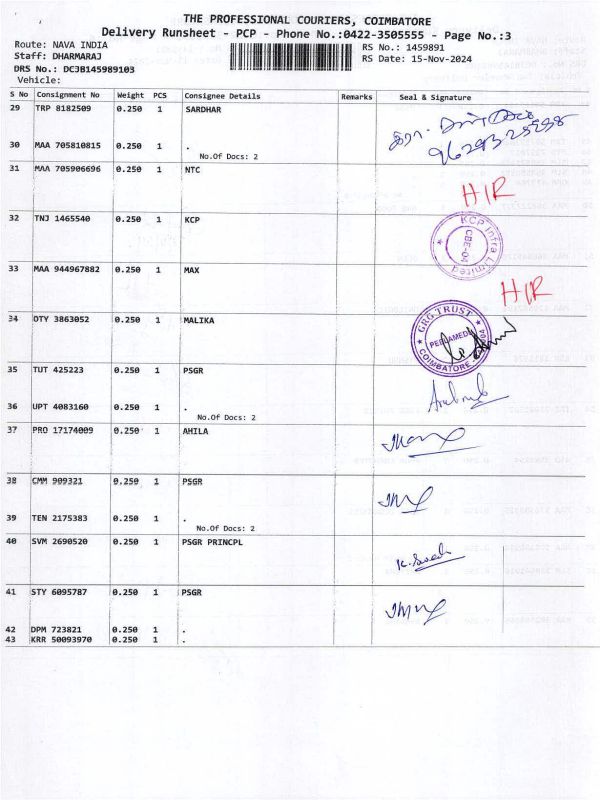 THE PROFESSIONAL COURIERS, COIMBATORE
Delivery Runsheet - PCP - Phone No.:0422-3505555 - Page No.:3
Route: NAVA INDIA
RS No.: 1459891
Staff: DHARMARAJ
RS Date: 15-Nov-2024
DRS No.: DCJB145989103
Vehicle:
S No Consignment No Weight PCS Consignee Details Remarks Seal & Signature
29 TRP 8182509 0.250 1 SARDHAR
30 MAA 705810815 0.250 1 .
No.Of Docs: 2
31 MAA 705906696 0.250 1 NTC
HIR
32 TNJ 1465540 0.250 1 KCP
KCP Infra Limited
CBE-04
33 MAA 944967882 0.250 1 MAX
HIR
34 DTY 3863052 0.250 1 MALIKA
GRG TRUST
COIMBATORE
35 TUT 425223 0.250 1 PSGR
36 UPT 4083160 0.250 1 .
No.Of Docs: 2
37 PRO 17174009 0.250 1 AHILA
38 CMM 909321 0.250 1 PSGR
39 TEN 2175383 0.250 1 .
No.Of Docs: 2
40 SVM 2690520 0.250 1 PSGR PRINCPL
41 STY 6095787 0.250 1 PSGR
42 DPM 723821 0.250 1 .
43 KRR 50093970 0.250 1 .